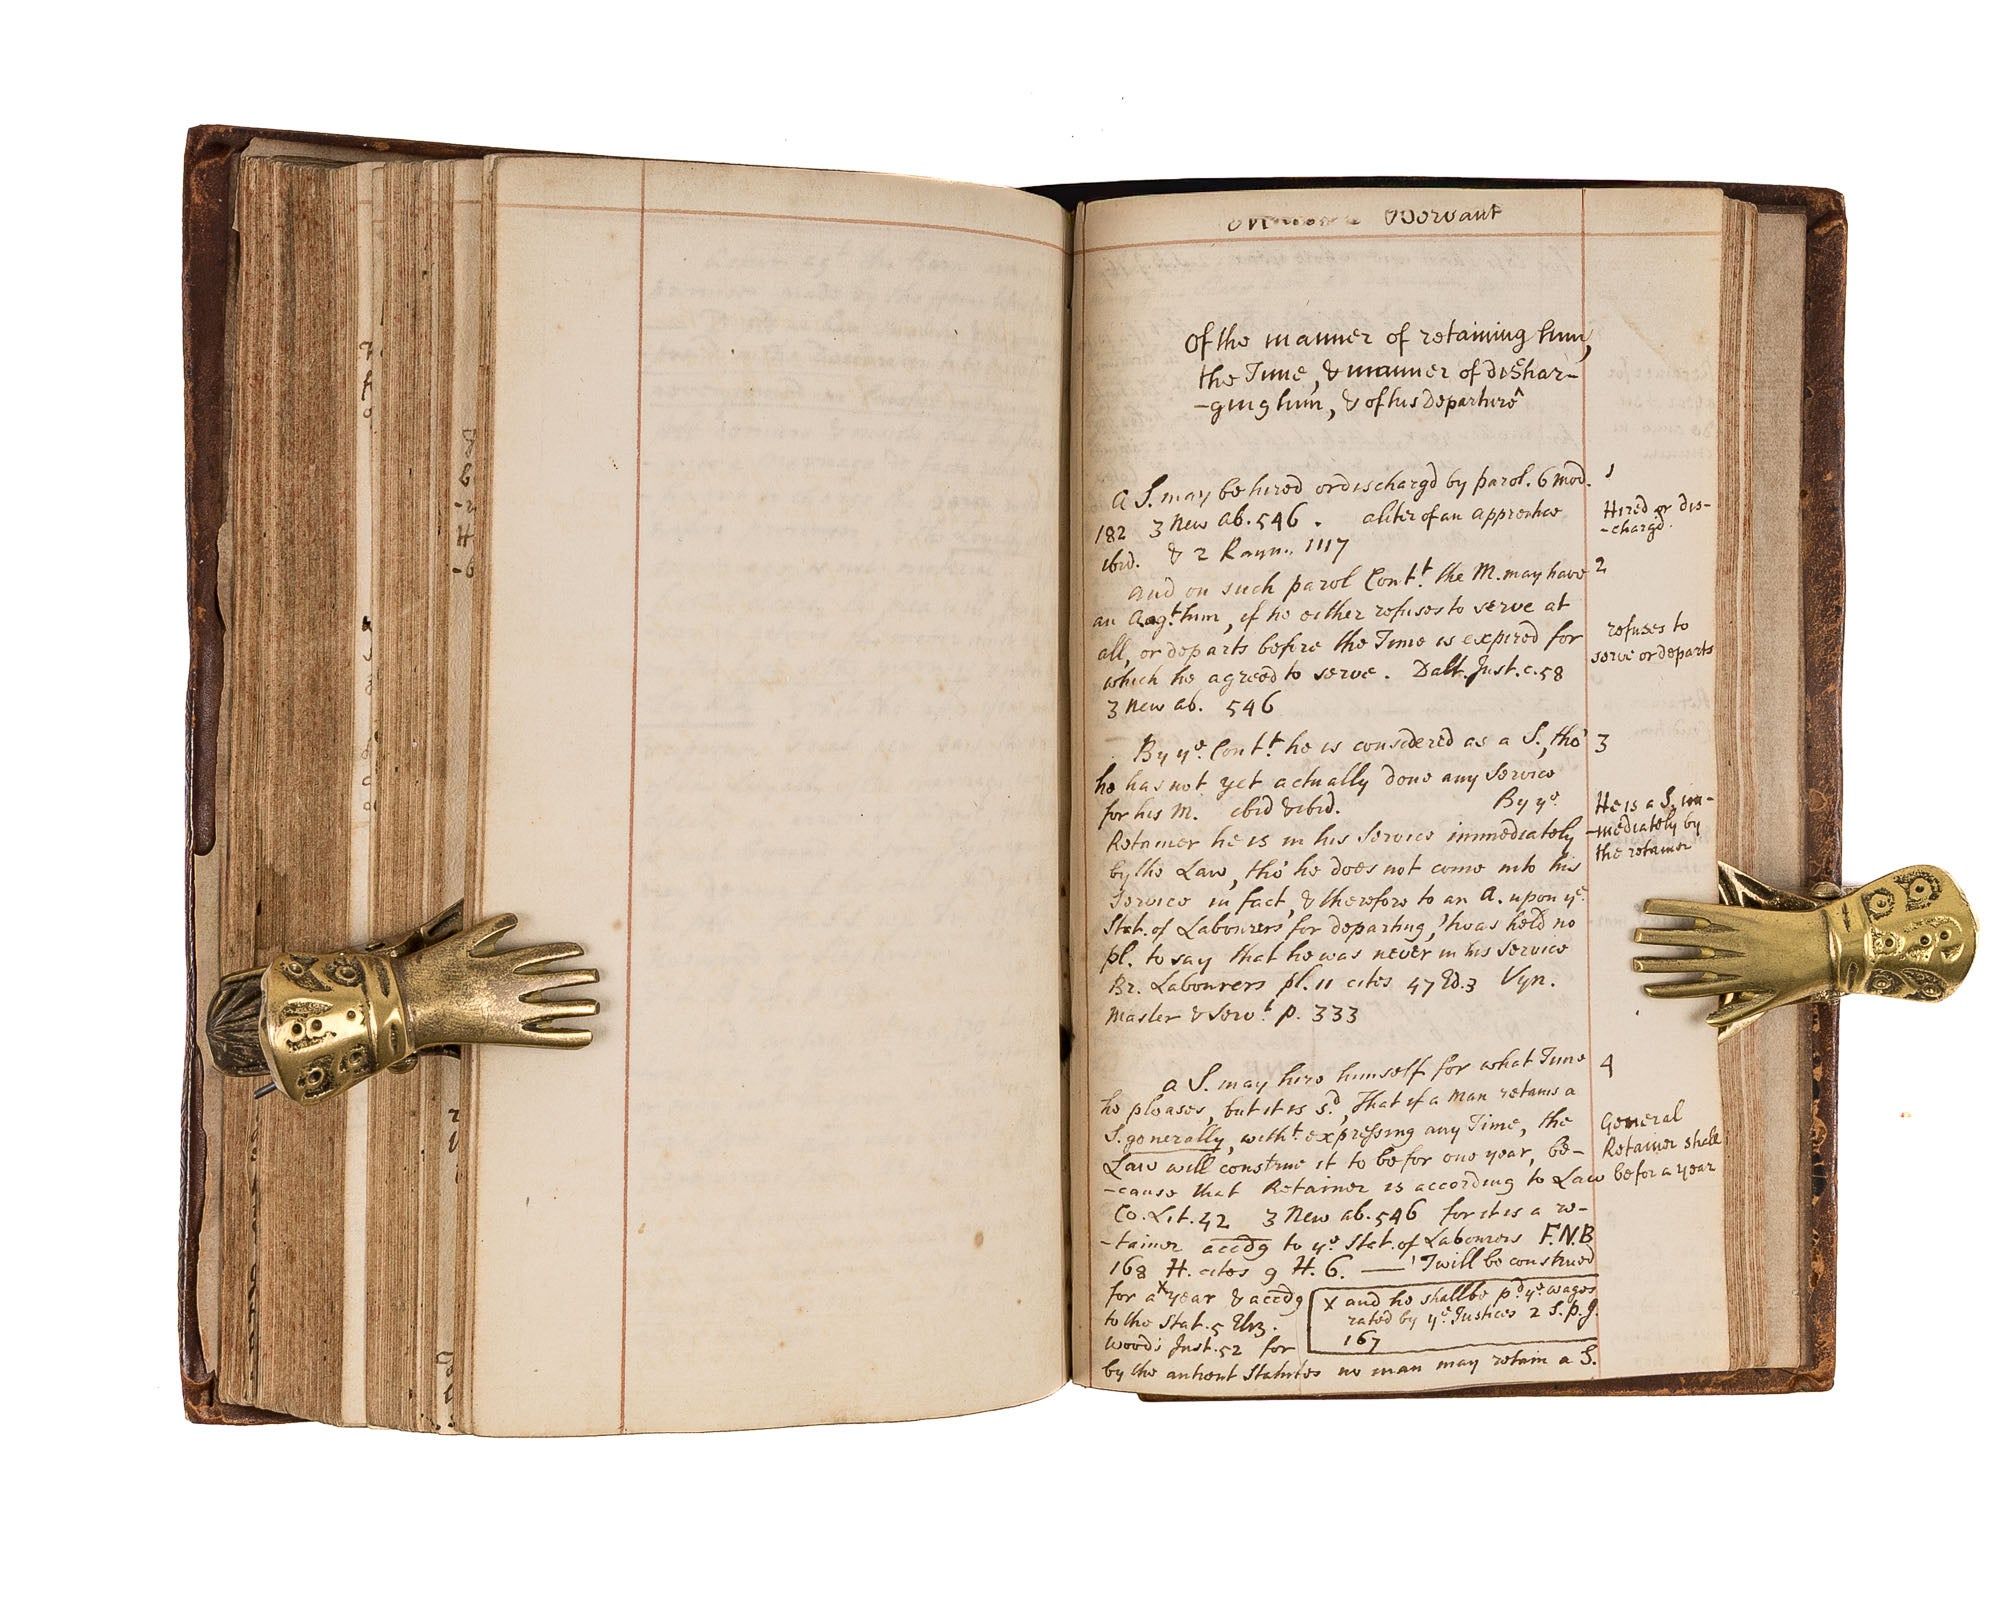 Servant
Of the manner of retaining him,
the Time, & manner of dischar-
-ging him, & of his departure
a S. may be hired or dischargd by parol. 6 mod.
182 3 New ab. 546. aliter of an apprentice
ibid. & 2 Raym. 1117
1
Hired or dis-
-chargd.
And on such parol Contt. the M. may have
an A agt. him, if he either refuses to serve at
all, or departs before the Time is expired for
which he agreed to serve. Dalt. Just. c. 58
3 New ab. 546
2
refuses to
serve or departs
By ye. Contt. he is considered as a S., tho'
he has not yet actually done any Service
for his M. ibid & ibid. By ye.
Retainer he is in his Service immediately
by the Law, tho' he does not come into his
Service in fact, & therefore to an A. upon ye.
Stat. of Labourers for departing, 'twas held no
pl. to say that he was never in his Service
Br. Labourers pl. 11 cites 47 Ed. 3 Vyn.
Master & Servt. p. 333
3
He is a S. im-
-mediately by
the retainer
a S. may hire himself for what Time
he pleases, but it is sd. That if a Man retains a
S. generally, witht. expressing any Time, the
Law will construe it to be for one year, be-
-cause that Retainer is according to Law
Co. Lit. 42 3 New ab. 546 for it is a re-
-tainer accdg to ye. Stat. of Labourers F.N.B
168 H. cites 9 H. 6. — 'Twill be construed
for a x year & accdg
to the Stat. 5 Eliz.
Woods Just. 52 for
x and he shall be pd ye. wages
rated by ye. Justices 2 S.p.J.
167
by the antient Statutes no man may retain a S.
4
General
Retainer shall
be for a year